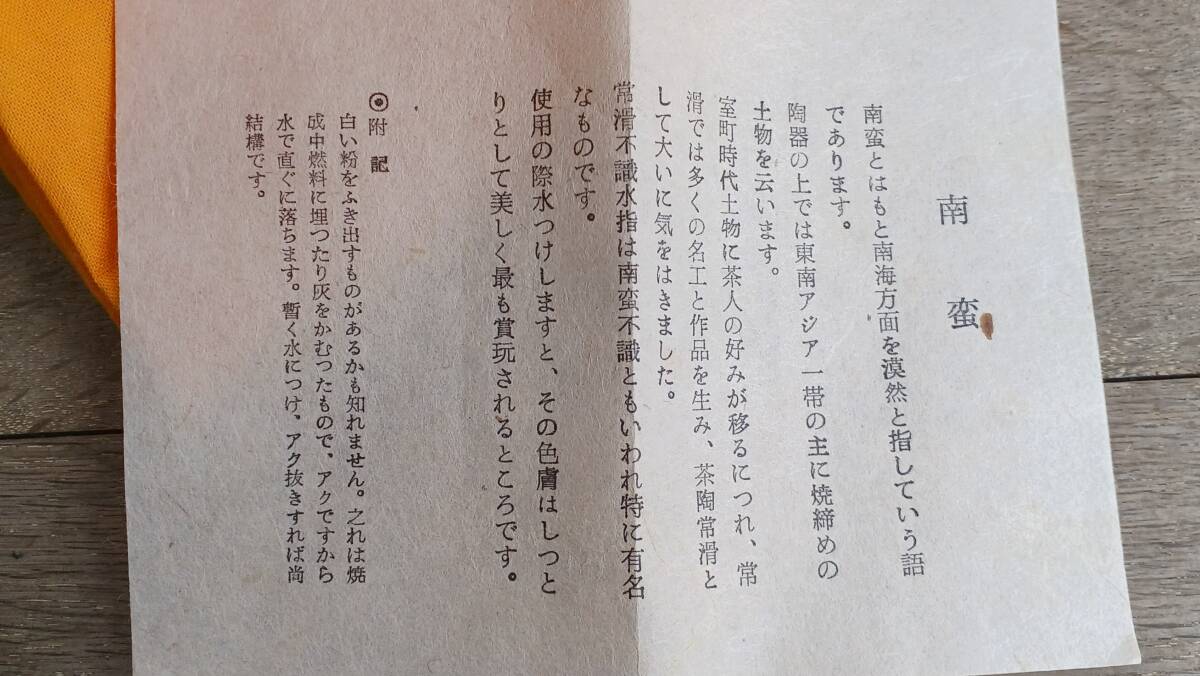 南蛮
南蛮とはもと南海方面を漠然と指していう語
であります。
陶器の上では東南アジア一帯の主に焼締めの
土物を云います。
室町時代土物に茶人の好みが移るにつれ、常
滑では多くの名工と作品を生み、茶陶常滑と
して大いに気をはきました。
常滑不識水指は南蛮不識ともいわれ特に有名
なものです。
使用の際水つけしますと、その色膚はしつと
りとして美しく最も賞玩されるところです。
◎附記
白い粉をふき出すものがあるかも知れません。之れは焼
成中燃料に埋つたり灰をかむつたもので、アクですから
水で直ぐに落ちます。暫く水につけ、アク抜きすれば尚
結構です。